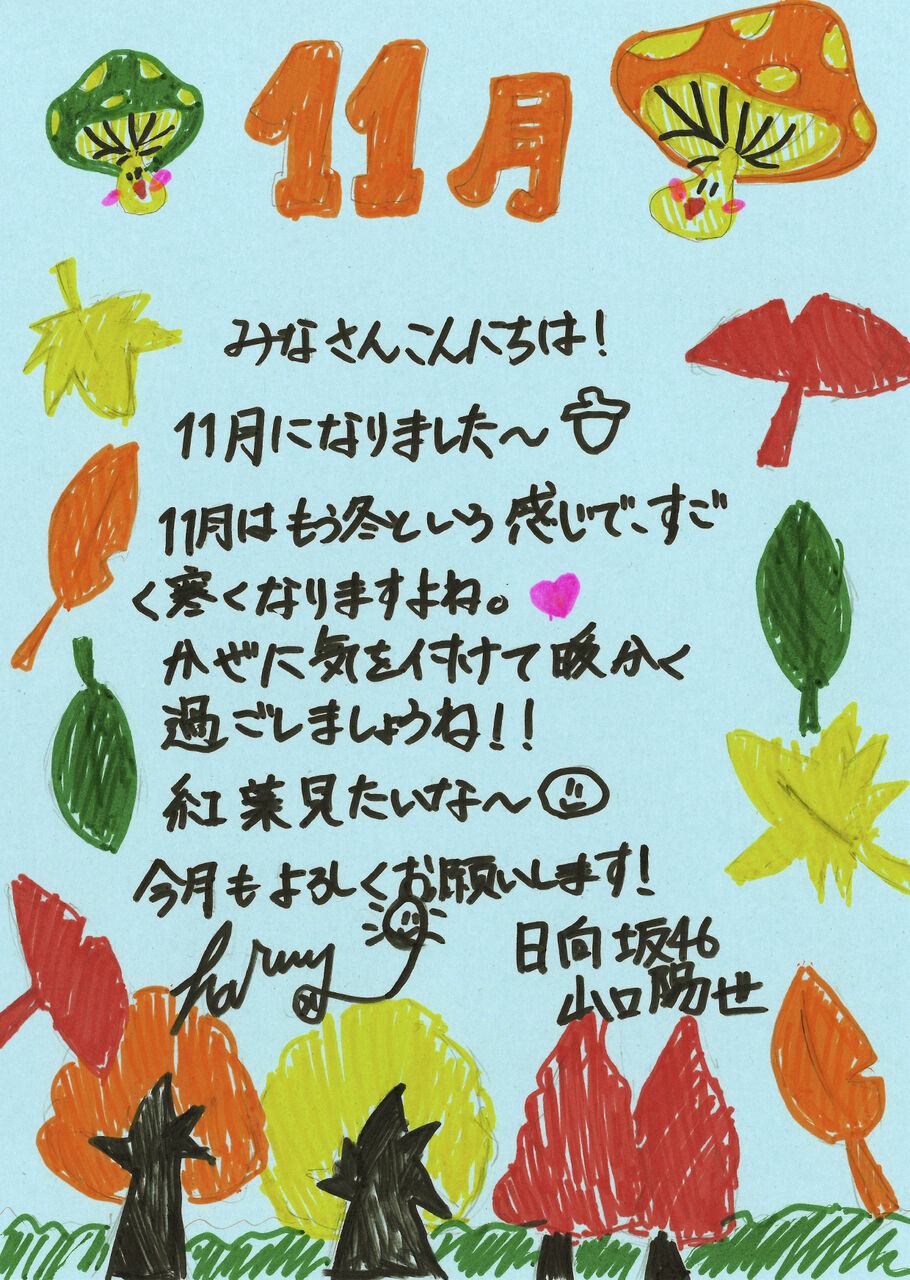 11月
みなさんこんにちは!
11月になりました〜
11月はもう冬という感じで、すご
く寒くなりますよね。
かぜに気を付けて暖かく
過ごしましょうね!!
紅葉見たいな〜
今月もよろしくお願いします!
haruy
日向坂46
山口陽世